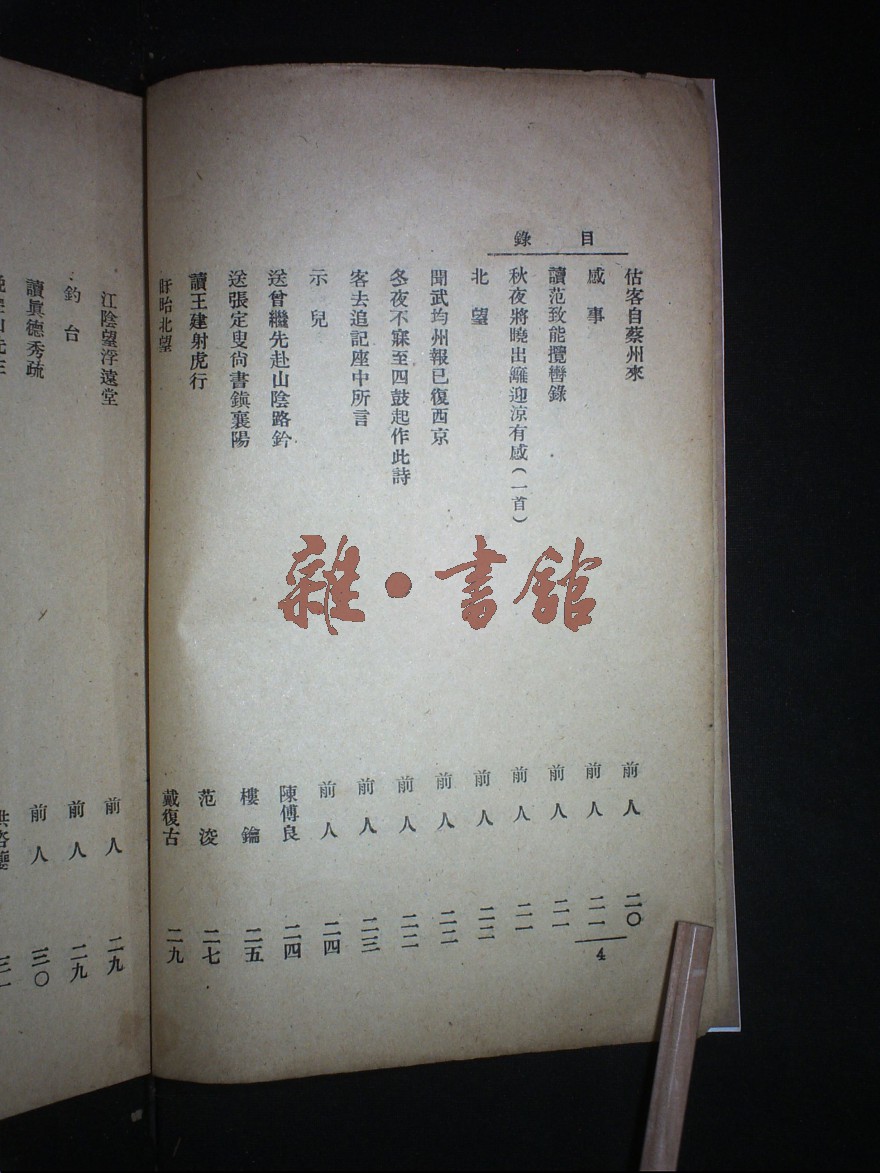 目錄
估客自蔡州來 前人 二〇
感事 前人 二一
讀范致能攬轡錄 前人 二一
秋夜將曉出籬迎涼有感(一首) 前人 二一
北望 前人 二二
聞武均州報已復西京 前人 二二
冬夜不寐至四鼓起作此詩 前人 二二
客去追記座中所言 前人 二三
示兒 前人 二四
送曾繼先赴山陰路鈐 陳傅良 二四
送張定叟尚書鎮襄陽 樓鑰 二五
讀王建射虎行 范浚 二七
盱眙北望 戴復古 二九
江陰望浮遠堂 前人 二九
釣台 前人 二九
讀眞德秀疏 前人 三〇
4
雜·書館